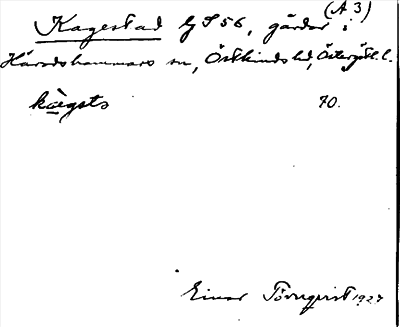 (A 3)
Kagestad GS 56, gårdar i
Häradshammars sn, Östkinds hd, Östergötl. l.
kàgsts 70.
Einar Törnqvist 1927